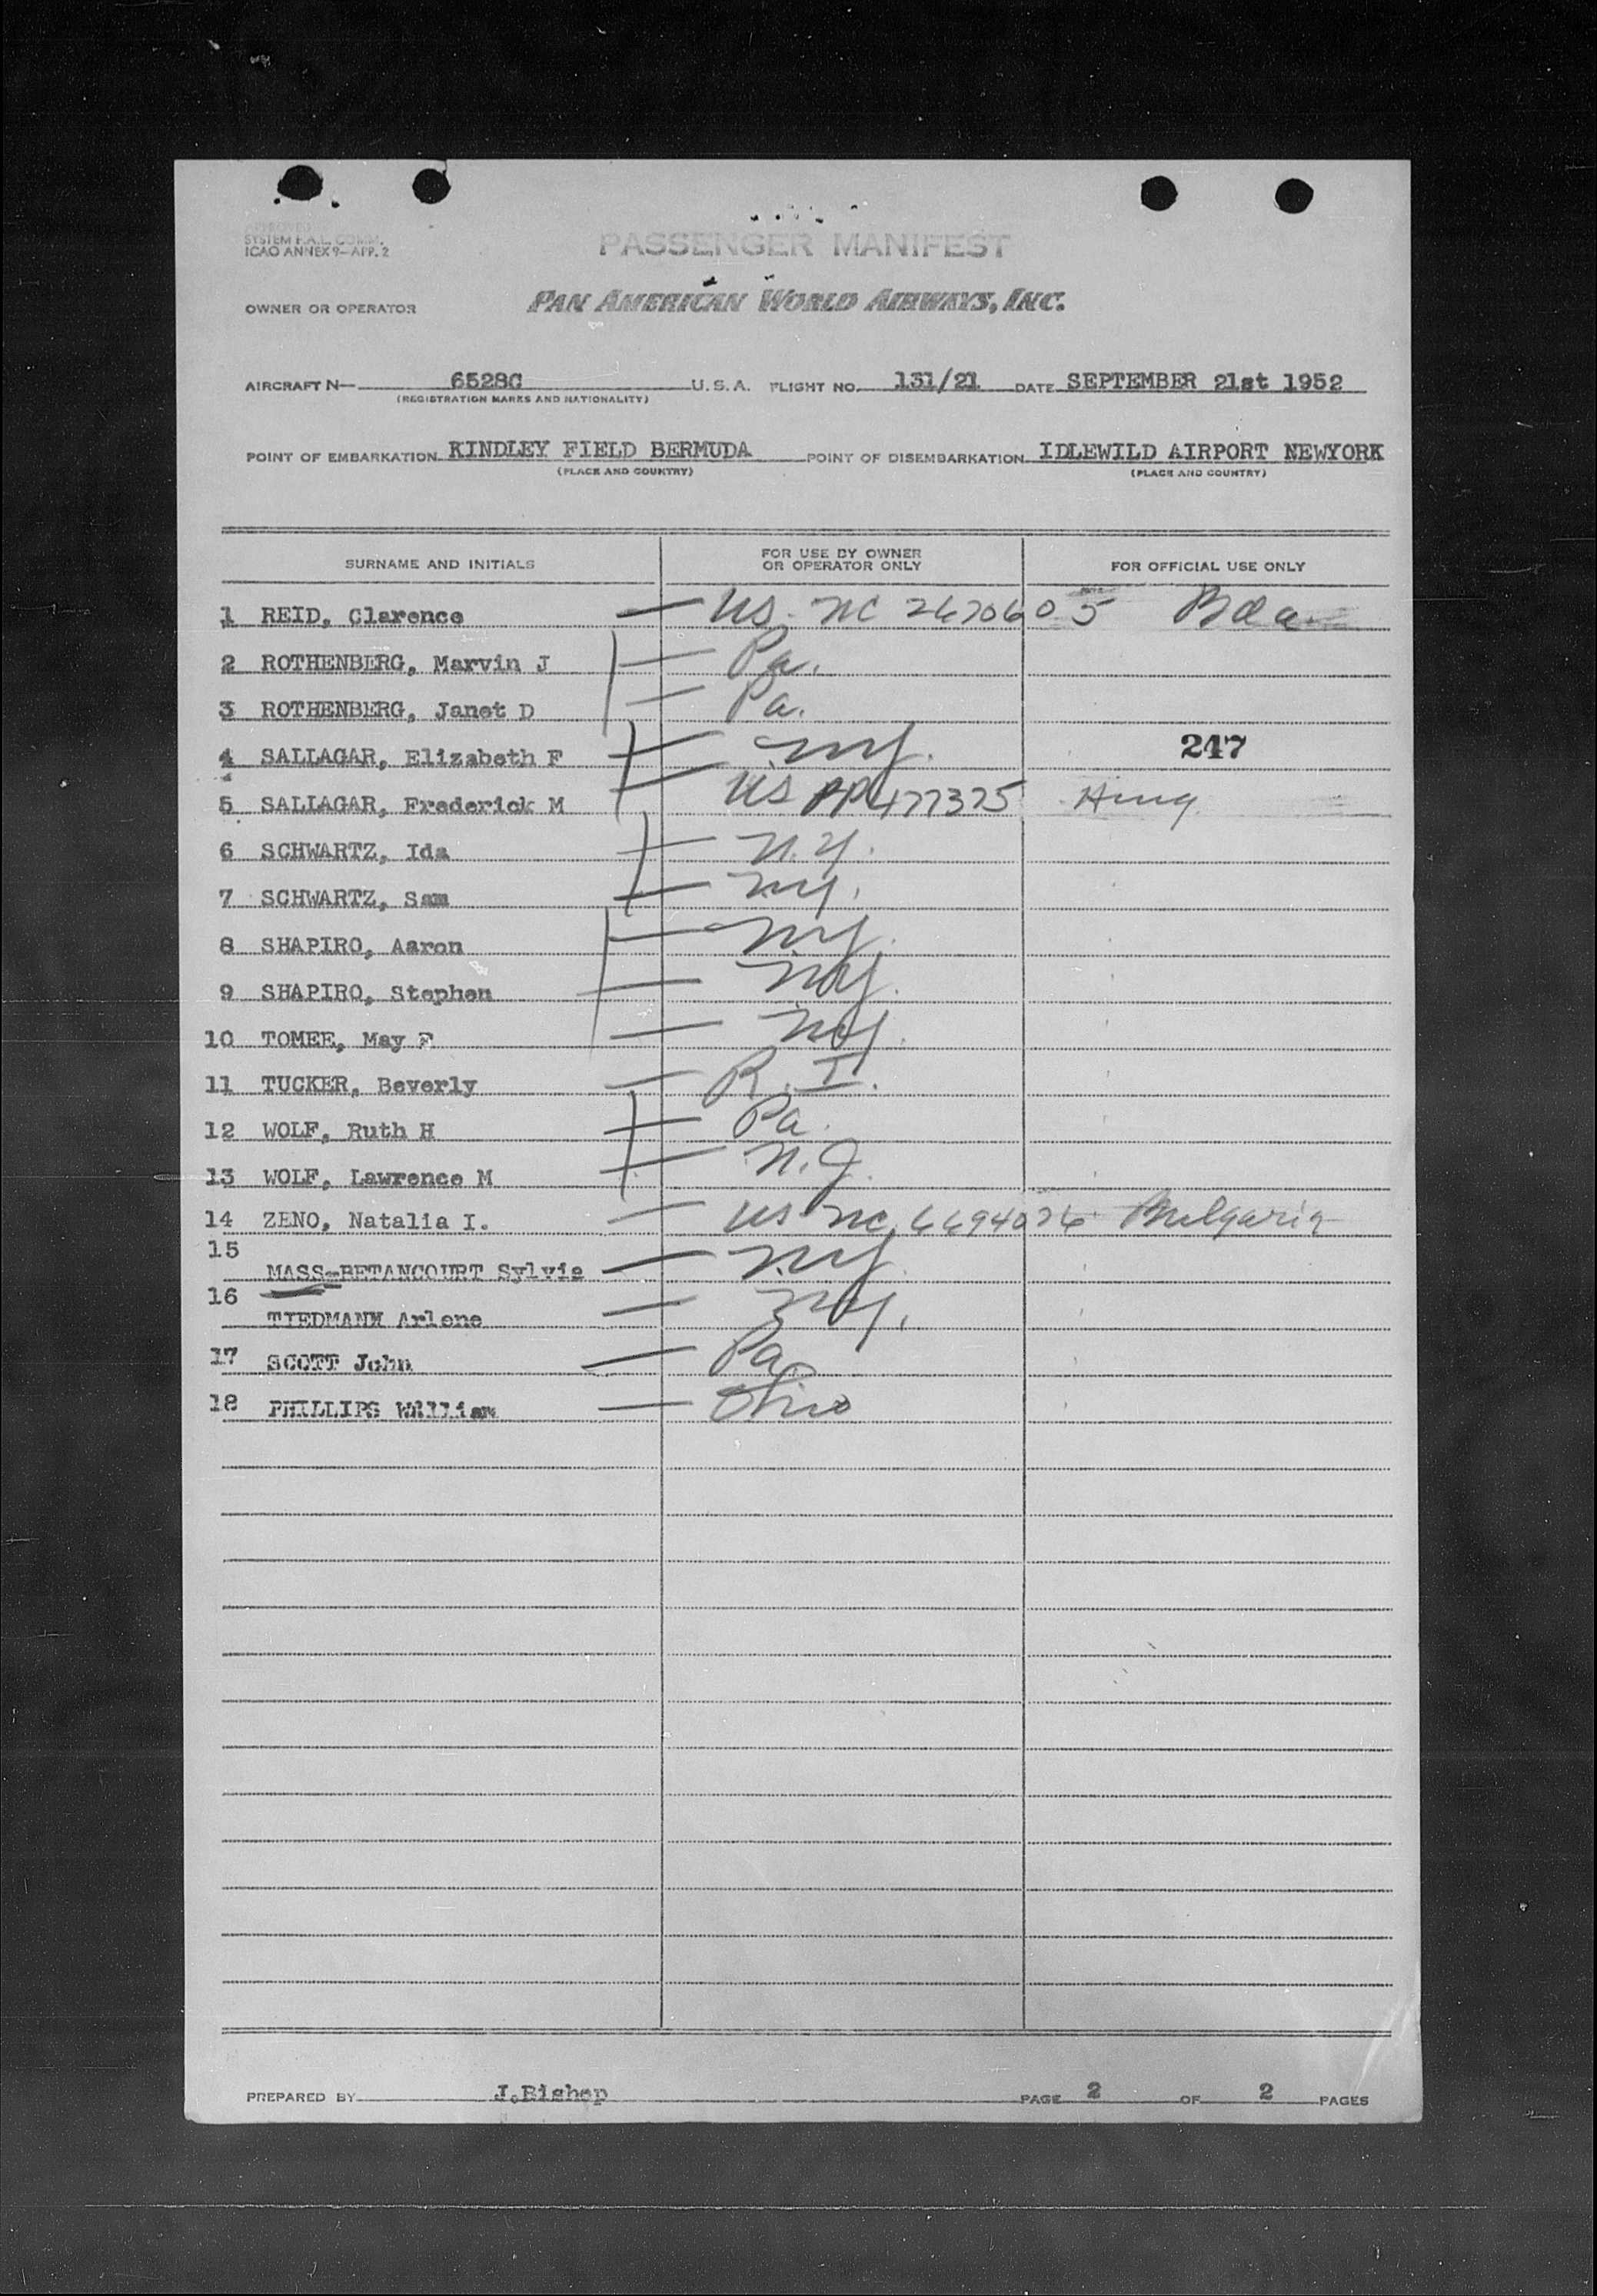 SYSTEM F.A.L. COMM.
ICAO ANNEX 9-APP. 2
PASSENGER MANIFEST
OWNER OR OPERATOR PAN AMERICAN WORLD AIRWAYS, INC.
AIRCRAFT N— 6528C U.S.A. FLIGHT NO. 131/21 DATE SEPTEMBER 21st 1952
(REGISTRATION MARKS AND NATIONALITY)
POINT OF EMBARKATION KINDLEY FIELD BERMUDA POINT OF DISEMBARKATION IDLEWILD AIRPORT NEWYORK
(PLACE AND COUNTRY) (PLACE AND COUNTRY)
SURNAME AND INITIALS FOR USE BY OWNER OR OPERATOR ONLY FOR OFFICIAL USE ONLY
1 REID, Clarence — US. NC 2670605 Bda
2 ROTHENBERG, Marvin J — Pa.
3 ROTHENBERG, Janet D — Pa.
4 SALLAGAR, Elizabeth F — NY. 247
5 SALLAGAR, Frederick M — US PP 477375 Hung.
6 SCHWARTZ, Ida — N.Y.
7 SCHWARTZ, Sam — NY.
8 SHAPIRO, Aaron — NY.
9 SHAPIRO, Stephen — NY.
10 TOMEE, May F — NY.
11 TUCKER, Beverly — R.I.
12 WOLF, Ruth H — Pa.
13 WOLF, Lawrence M — N.J.
14 ZENO, Natalia I. — US NC 6694026 Bulgaria
15 MASS-BETANCOURT Sylvie — NY
16 TIEDMANN Arlene — NY.
17 SCOTT John — Pa
18 PHILLIPS William — Ohio
PREPARED BY J.Bishop PAGE 2 OF 2 PAGES